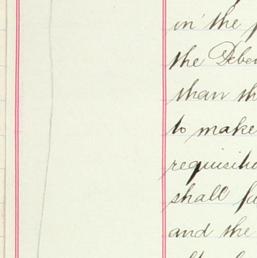 in the
the Deben
than th
to make
requisitio
shall fu
and the